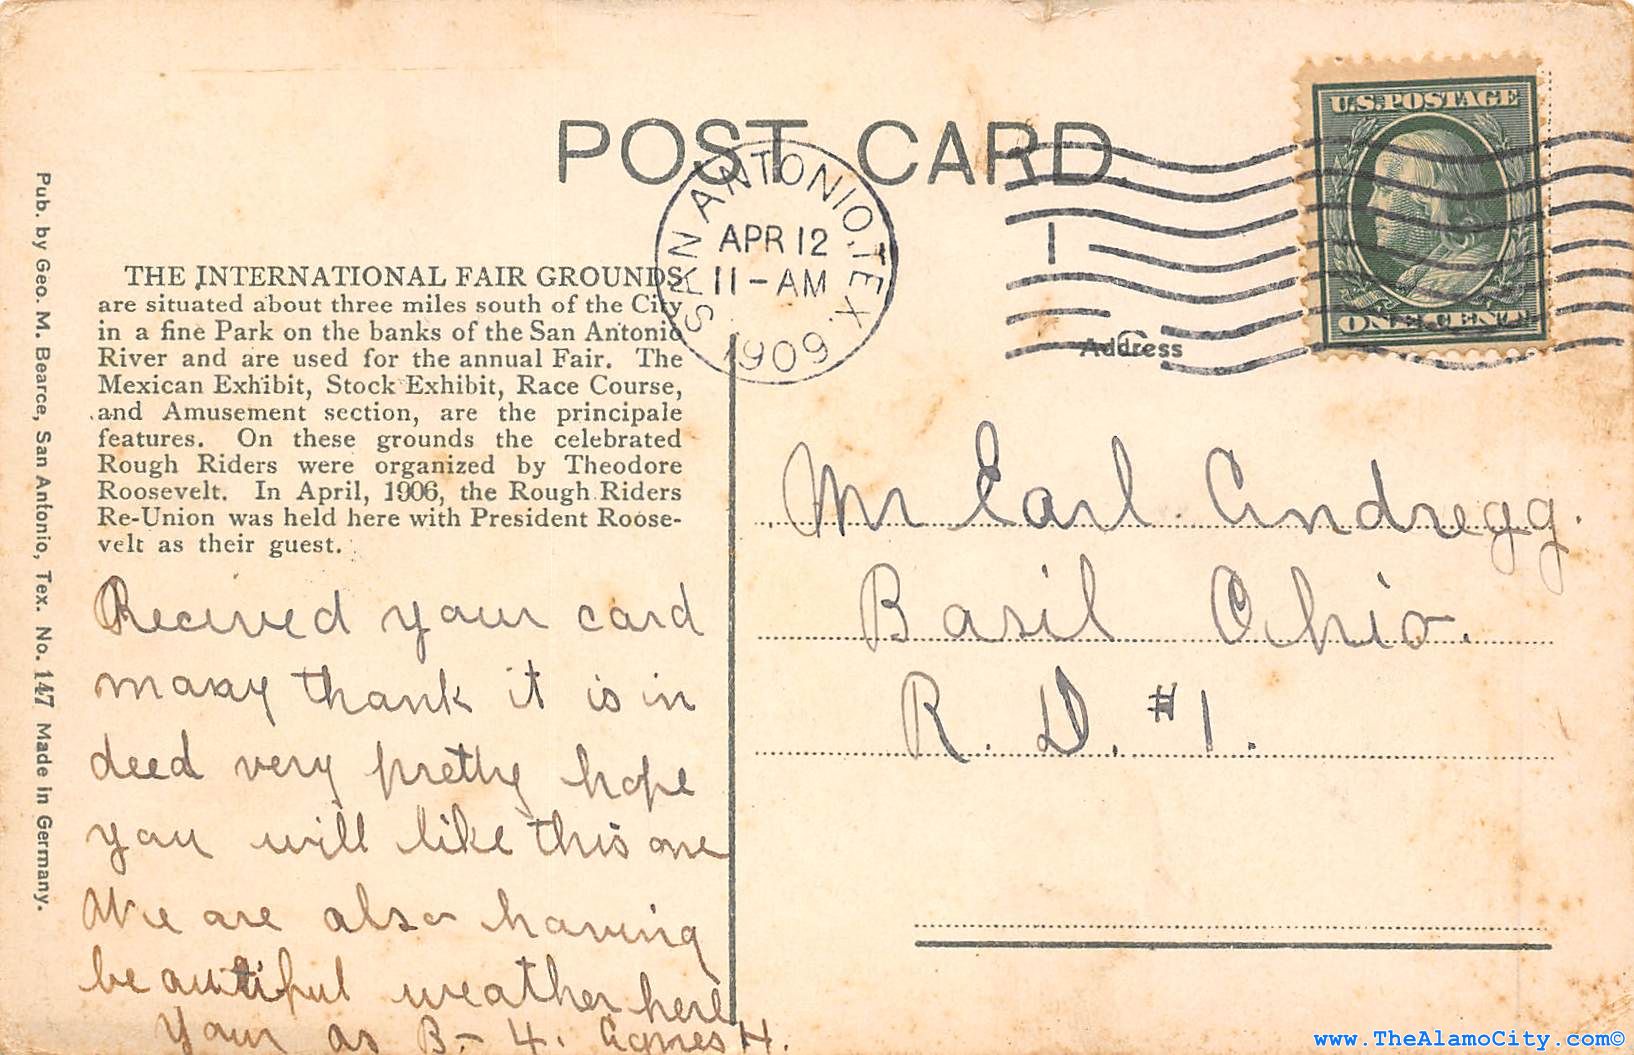 POST CARD.
U.S. POSTAGE
ONE CENT
SAN ANTONIO, TEX.
APR 12
11-AM
1909
1
Address
Pub. by Geo. M. Bearce, San Antonio, Tex. No. 147 Made in Germany.
THE INTERNATIONAL FAIR GROUNDS
are situated about three miles south of the City
in a fine Park on the banks of the San Antonio
River and are used for the annual Fair. The
Mexican Exhibit, Stock Exhibit, Race Course,
and Amusement section, are the principale
features. On these grounds the celebrated
Rough Riders were organized by Theodore
Roosevelt. In April, 1906, the Rough Riders
Re-Union was held here with President Roose-
velt as their guest.
Recieved your card
many thank it is in
deed very pretty hope
you will like this one
We are also having
beautiful weather here
Your as B-4. Agnes H.
Mr Earl Andregg.
Basil Ohio.
R. D. #1.
www.TheAlamoCity.com©